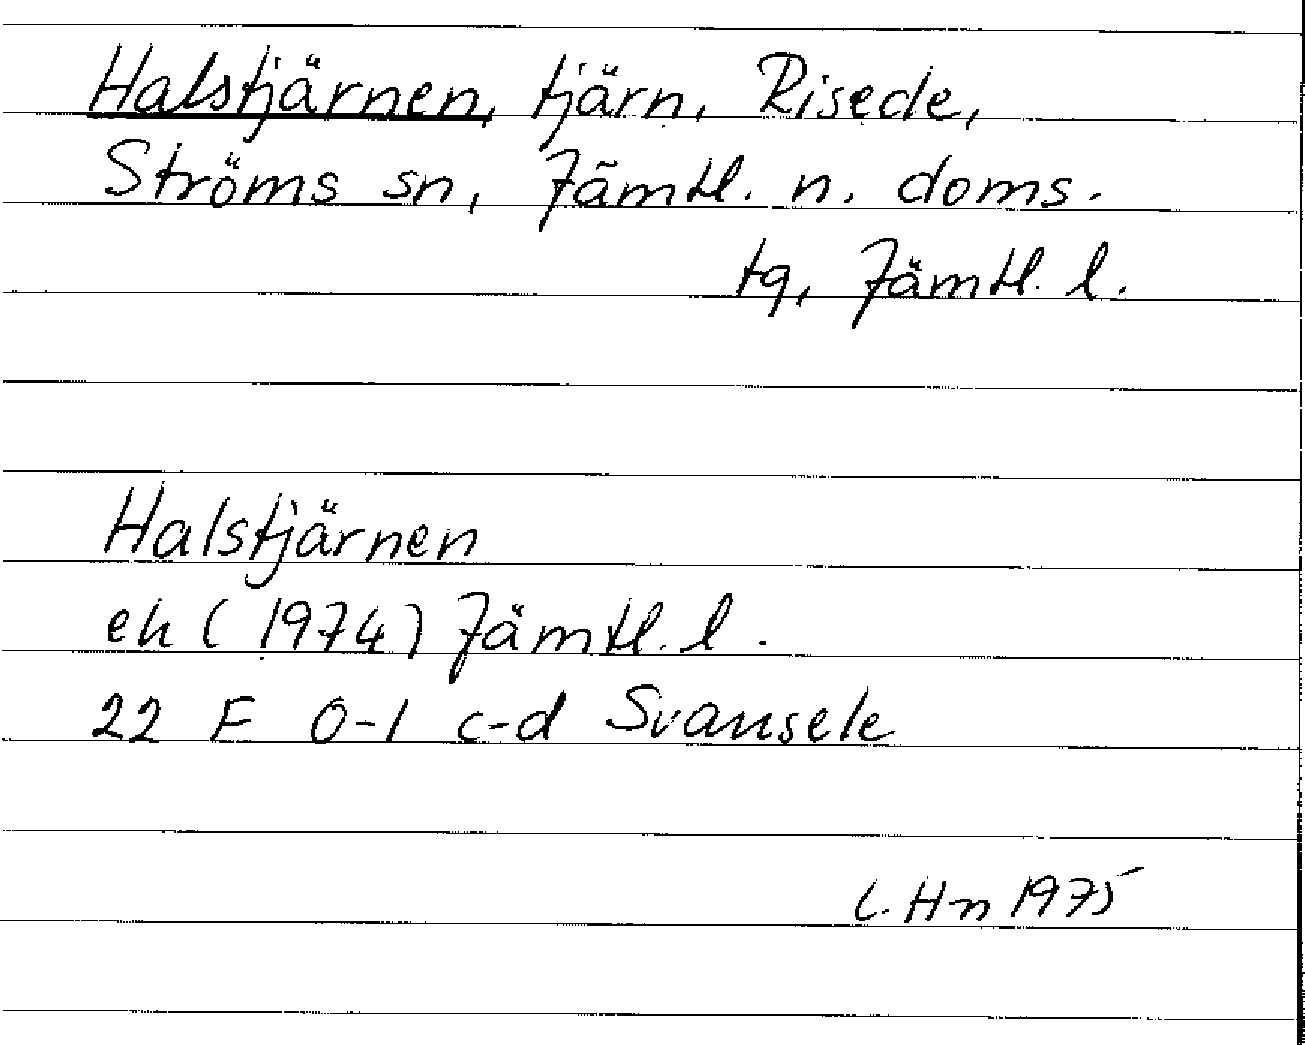 Halstjärnen, tjärn, Risede,
Ströms sn, Jämtl. n. doms.
tg, Jämtl. l.
Halstjärnen
ek (1974) Jämtl. l.
22 F 0-1 c-d Svansele
C. Hn 1975